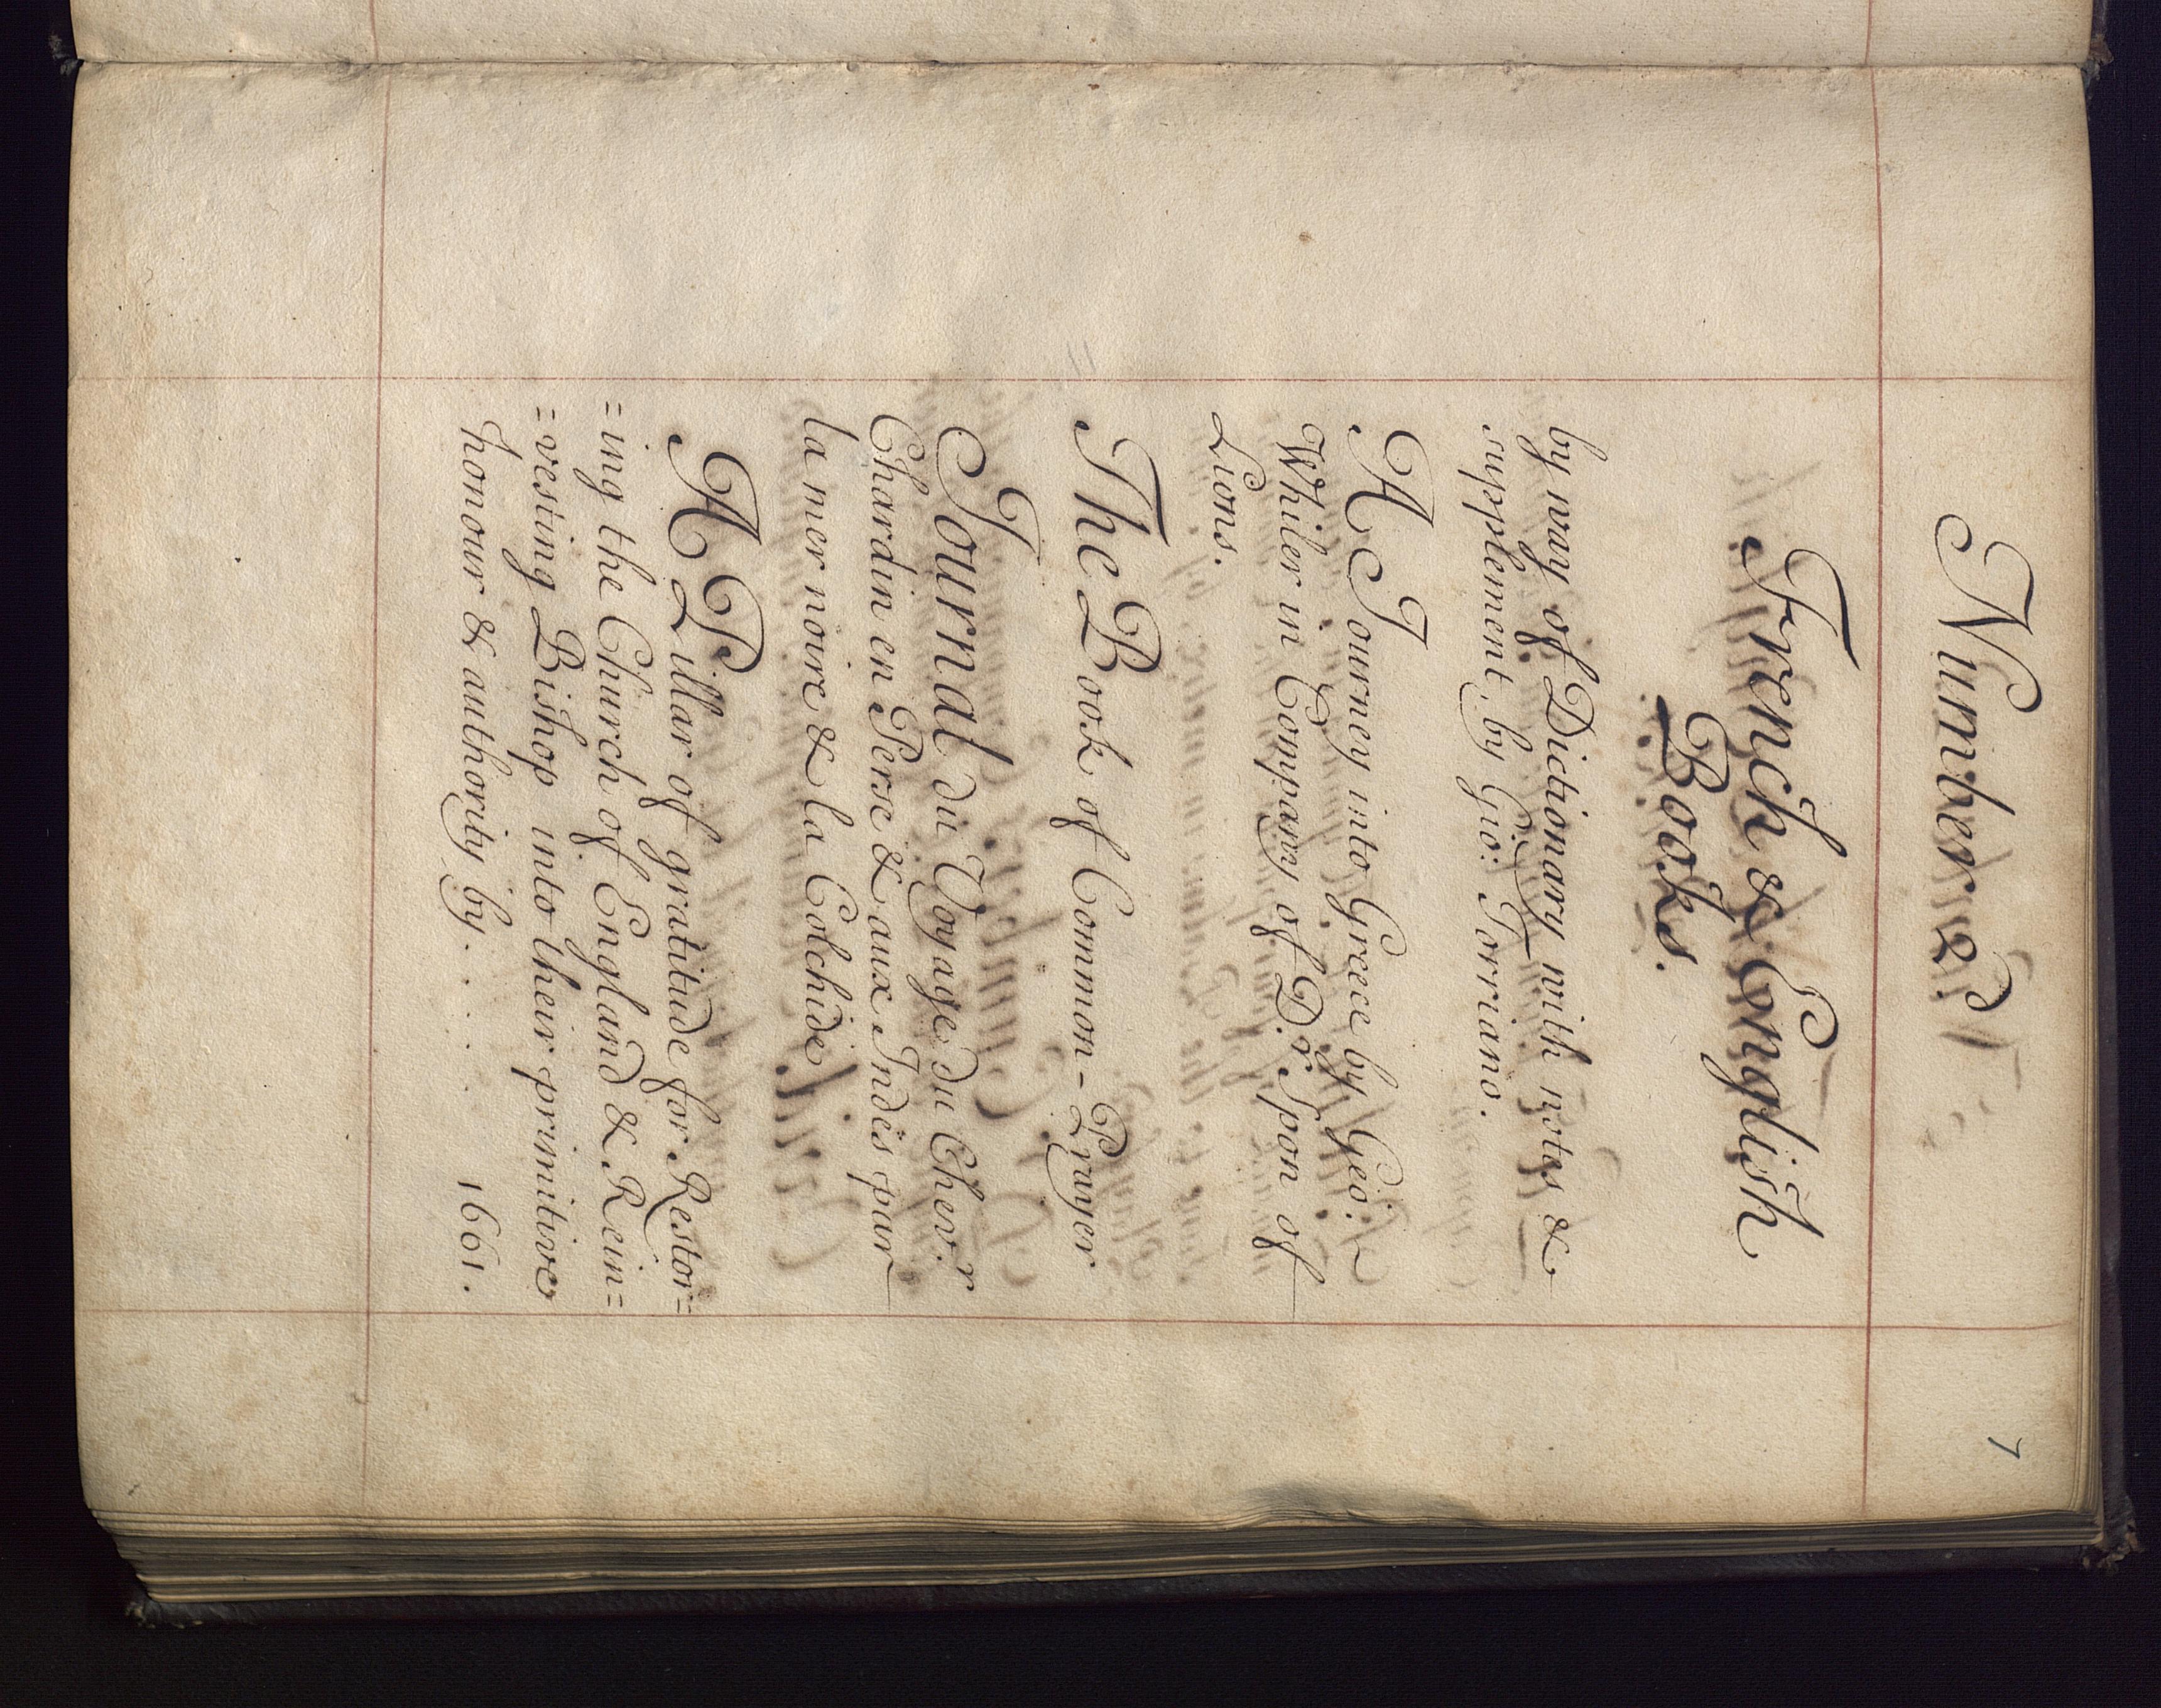 Number 2.d
7
French & English
Books.
by way of Dictionary with notes &
supplement, by Gio: Torriano.
A Journey into Greece by Geo:
Whiler in Company of D.r Spon of
Lions.
The Book of Common-Prayer
Journal du Voyage du Chev.r
Chardin en Perse & aux Indes par
la mer noire & la Colchide
A Pillar of gratitude for Restor=
=ing the Church of England & Rein=
=vesting Bishop into their primitive
honour & authority by. . . . . 1661.